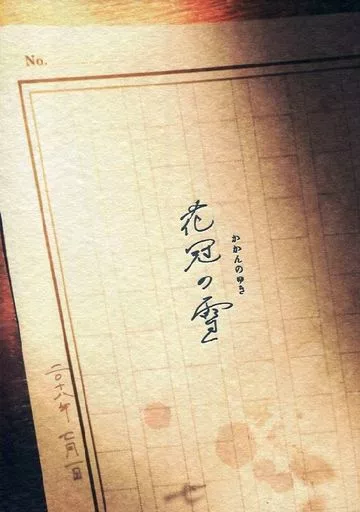 No.
花冠の雪
かかんのゆき
二〇十八年 七月一日